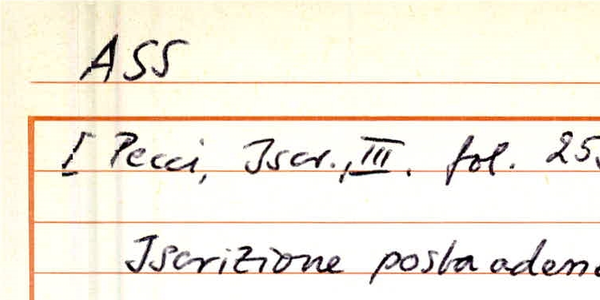 ASS
I Pecci, Iscr., III. fol. 25
Iscrizione posta